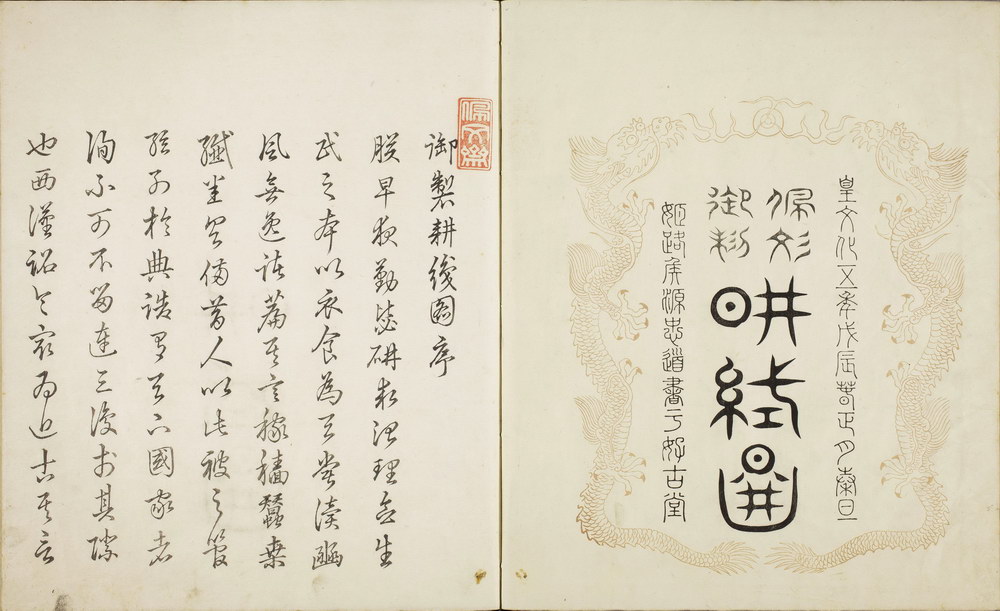 皇文化五年戊辰春正月旦
佩文
御製
畊織圖
姬路侯源忠道書于好古堂
佩文齋
御製耕織圖序
朕早夜勤毖研求治理念生
民之本以衣食為天嘗讀豳
風無逸諸篇其言稼穡蠶桑
纖悉具備昔人以此被之管
弦列於典誥有天下國家者
洵不可不留連三復於其際
也西漢詔令最為近古其言